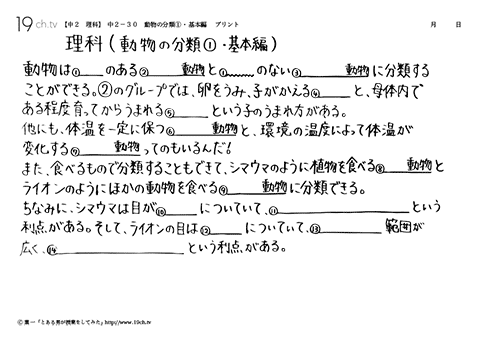 19ch.tv 【中2 理科】 中2-30 動物の分類①・基本編 プリント 月 日
理科(動物の分類①・基本編)
動物は①＿＿のある②＿＿動物と①＿＿のない③＿＿動物に分類する
ことができる。②のグループでは、卵をうみ、子がかえる④＿＿と、母体内で
ある程度育ってからうまれる⑤＿＿という子のうまれ方がある。
他にも、体温を一定に保つ⑥＿＿動物と、環境の温度によって体温が
変化する⑦＿＿動物ってのもいるんだ!
また、食べるもので分類することもできて、シマウマのように植物を食べる⑧＿＿動物と
ライオンのようにほかの動物を食べる⑨＿＿動物に分類できる。
ちなみに、シマウマは目が⑩＿＿についていて、⑪＿＿という
利点がある。そして、ライオンの目は⑫＿＿についていて、⑬＿＿範囲が
広く、⑭＿＿という利点がある。
Ⓒ葉一「とある男が授業をしてみた」http://www.19ch.tv